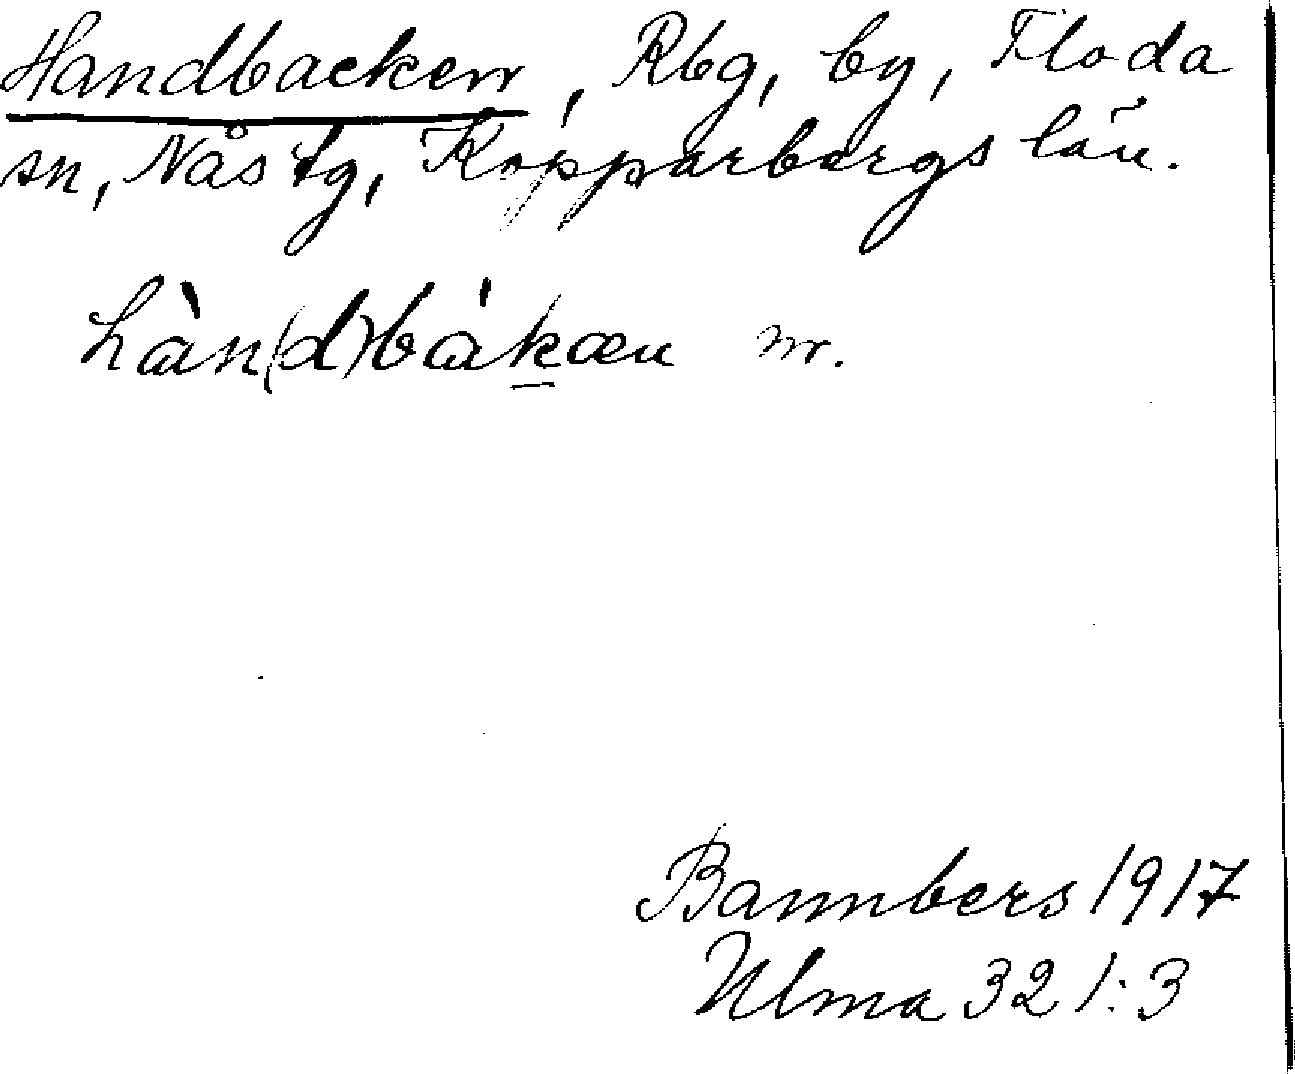 Handbacken, Rbg, by, Floda
sn, Nås tg, Kopparbergs län.
hàn(d)bákæn m.
Bannbers 1917
Ulma 321:3